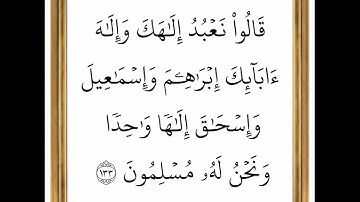 قَالُوا۟ نَعۡبُدُ إِلَـٰهَكَ وَإِلَـٰهَ
ءَابَاۤىِٕكَ إِبۡرَ ٰ⁠هِـۧمَ وَإِسۡمَـٰعِیلَ
وَإِسۡحَـٰقَ إِلَـٰهࣰا وَ ٰ⁠حِدࣰا
وَنَحۡنُ لَهُۥ مُسۡلِمُونَ ﴿١٣٣﴾